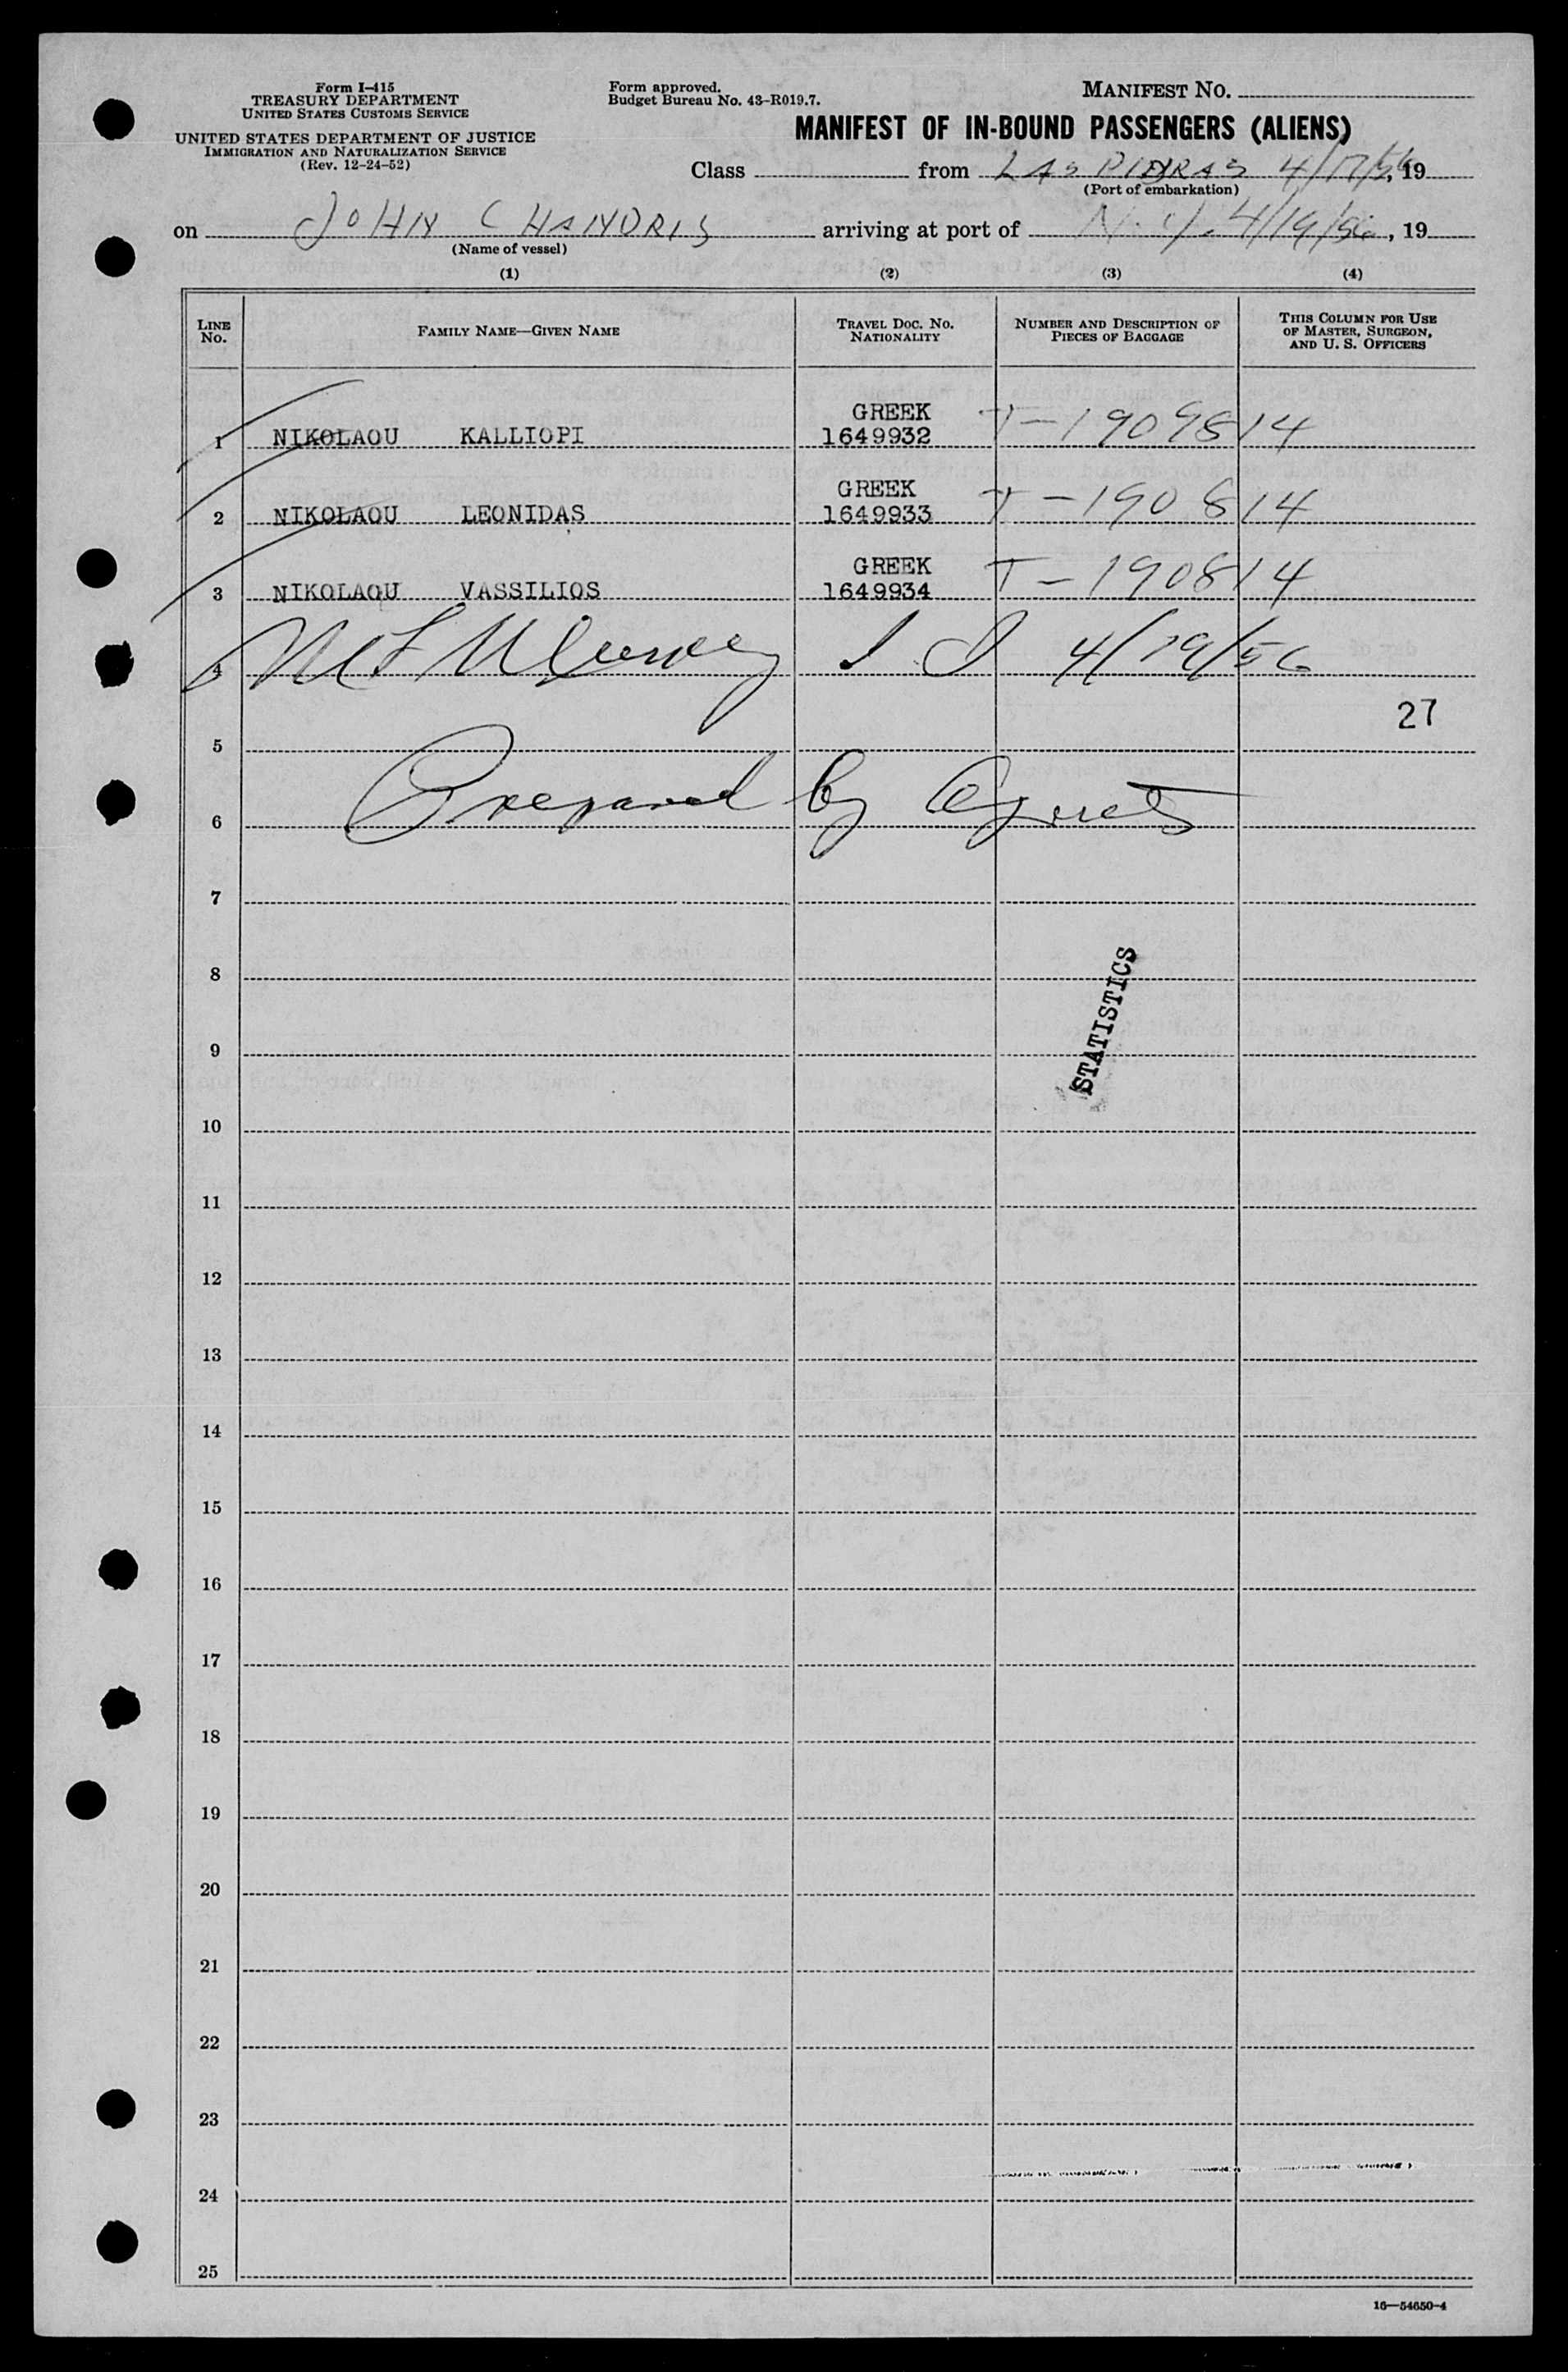 Form I-415
TREASURY DEPARTMENT
UNITED STATES CUSTOMS SERVICE
UNITED STATES DEPARTMENT OF JUSTICE
IMMIGRATION AND NATURALIZATION SERVICE
(Rev. 12-24-52)
Form approved.
Budget Bureau No. 43-R019.7.
MANIFEST NO.
MANIFEST OF IN-BOUND PASSENGERS (ALIENS)
Class from LAS PIEDRAS 4/17/56, 19
(Port of embarkation)
on JOHN CHANDRIS arriving at port of N.Y. 4/19/56, 19
(Name of vessel)
(1) (2) (3) (4)
LINE No. FAMILY NAME—GIVEN NAME TRAVEL DOC. NO. NATIONALITY NUMBER AND DESCRIPTION OF PIECES OF BAGGAGE THIS COLUMN FOR USE OF MASTER, SURGEON, AND U. S. OFFICERS
GREEK
1 NIKOLAOU KALLIOPI 1649932 T-1909814
GREEK
2 NIKOLAOU LEONIDAS 1649933 T-190814
GREEK
3 NIKOLAOU VASSILIOS 1649934 T-190814
4 I I 4/19/56
27
5
Prepared by Agents
6
7
8
STATISTICS
9
10
11
12
13
14
15
16
17
18
19
20
21
22
23
24
25
16—54650-4